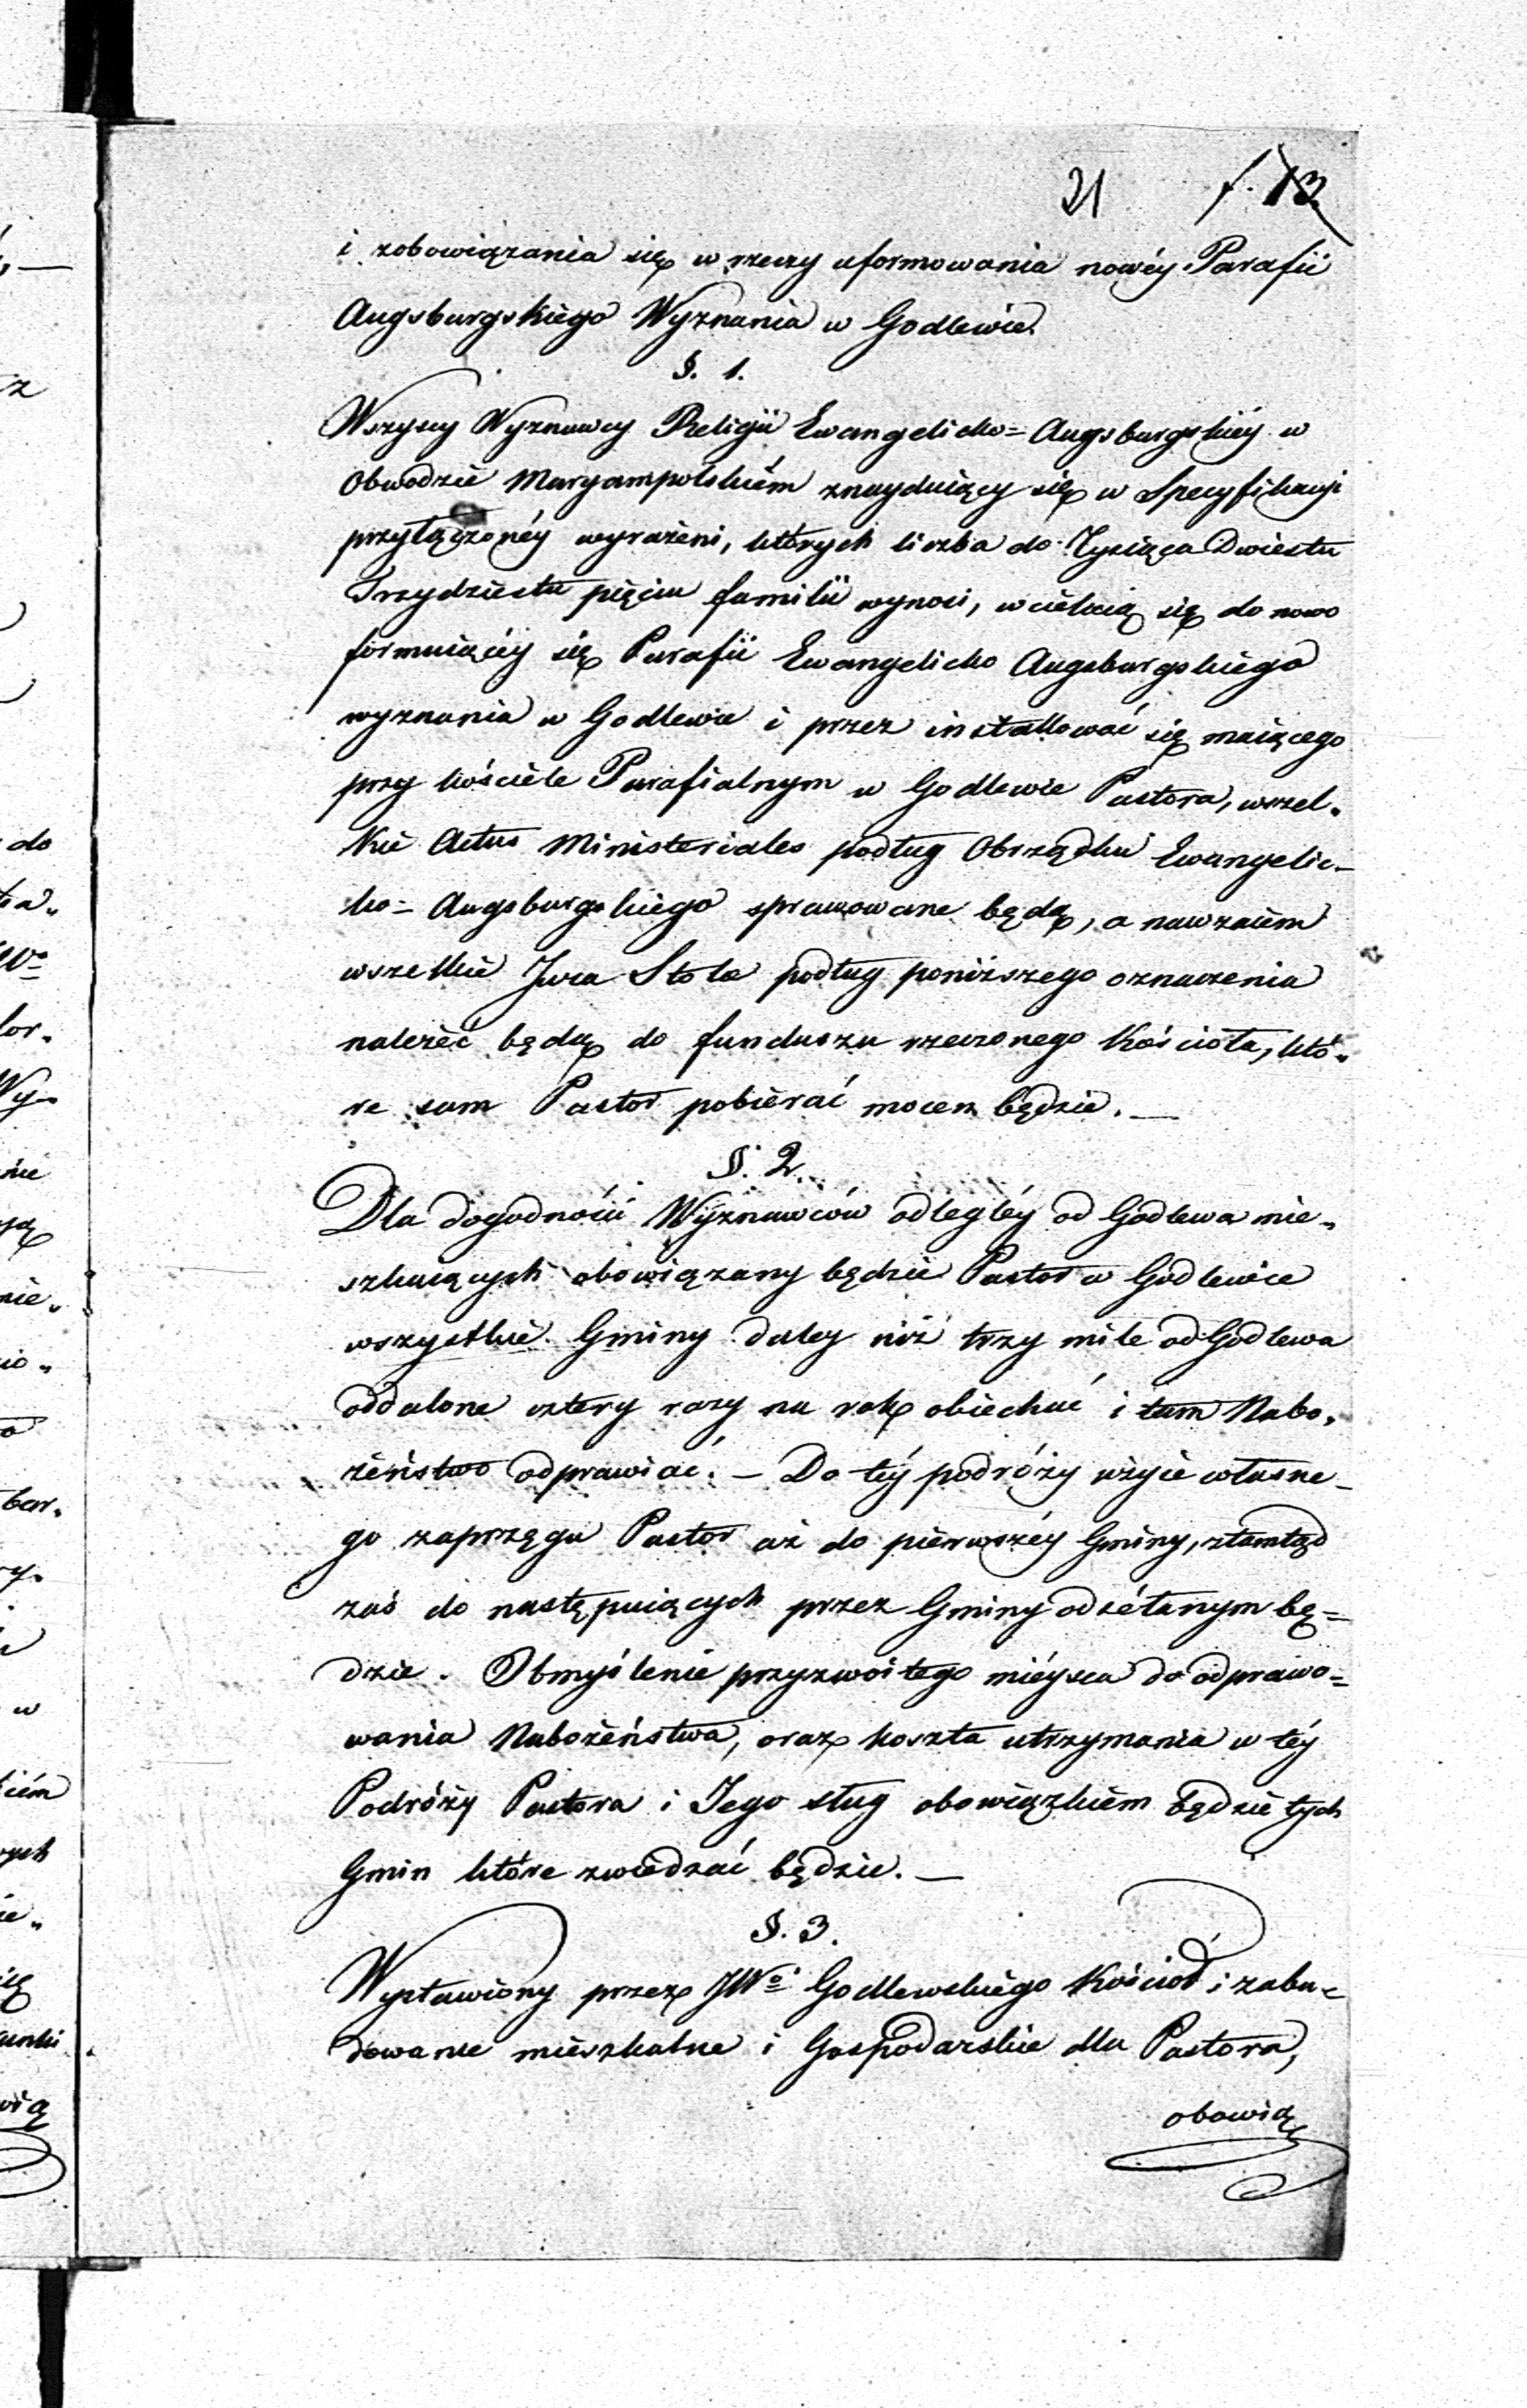 21 f. 13
i zobowiązania się w rzeczy uformowania nowéy Parafii
Augsburgskiego Wyznania w Godlewie.
§. 1.
Wszyscy Wyznawcy Religii Ewangelicko= Augsburgskiéy w
Obwodzie Maryampolskiém znayduiący się w Specyfikacyi
przyłączonéy wyrażeni, których liczba do Tysiąca Dwiestu
Trzydziestu pięciu familii wynosi, wcielaią się do nowo
formuiącéy się Parafii Ewangelicko Augsburgskiego
wyznania w Godlewie i przez installować się maiącego
przy kościele Parafialnym w Godlewie Pastora, wszel„
kie Actus Ministeriales podług Obrządku Ewangelic-
ko= Augsburgskiego sprawowane będą, a nawzaiem
wszelkie Jura Stola podług poniższego oznaczenia
należéć będą do funduszu rzeczonego Kościoła, któ„
re sam Pastor pobiérać mocen będzie. —
§. 2.
Dla dogodności Wyznawców odległéy od Godlewa mie„
szkaiących obowiązany będzie Pastor w Godlewie
wszystkie Gminy daley niż trzy mile od Godlewa
oddalone cztery razy na rok obiechać i tam Nabo„
żeństwo odprawiać. — Do téy podróży użyie własne-
go zaprzęgu Pastor aż do pierwszéy Gminy, ztamtąd
zaś do następuiących przez Gminy odsétanym bę=
dzie. Obmyślenie przyzwoitego miéysca do odprawo=
wania Nabożeństwa, oraz koszta utrzymania w téy
Podróży Pastora i Jego sług obowiązkiem będzie tych
Gmin które zwiedzać będzie. —
§. 3.
Wystawiony przez JWo Godlewskiego Kościoł i zabu=
dowanie mieszkalne i Gospodarskie dla Pastora,
obowią